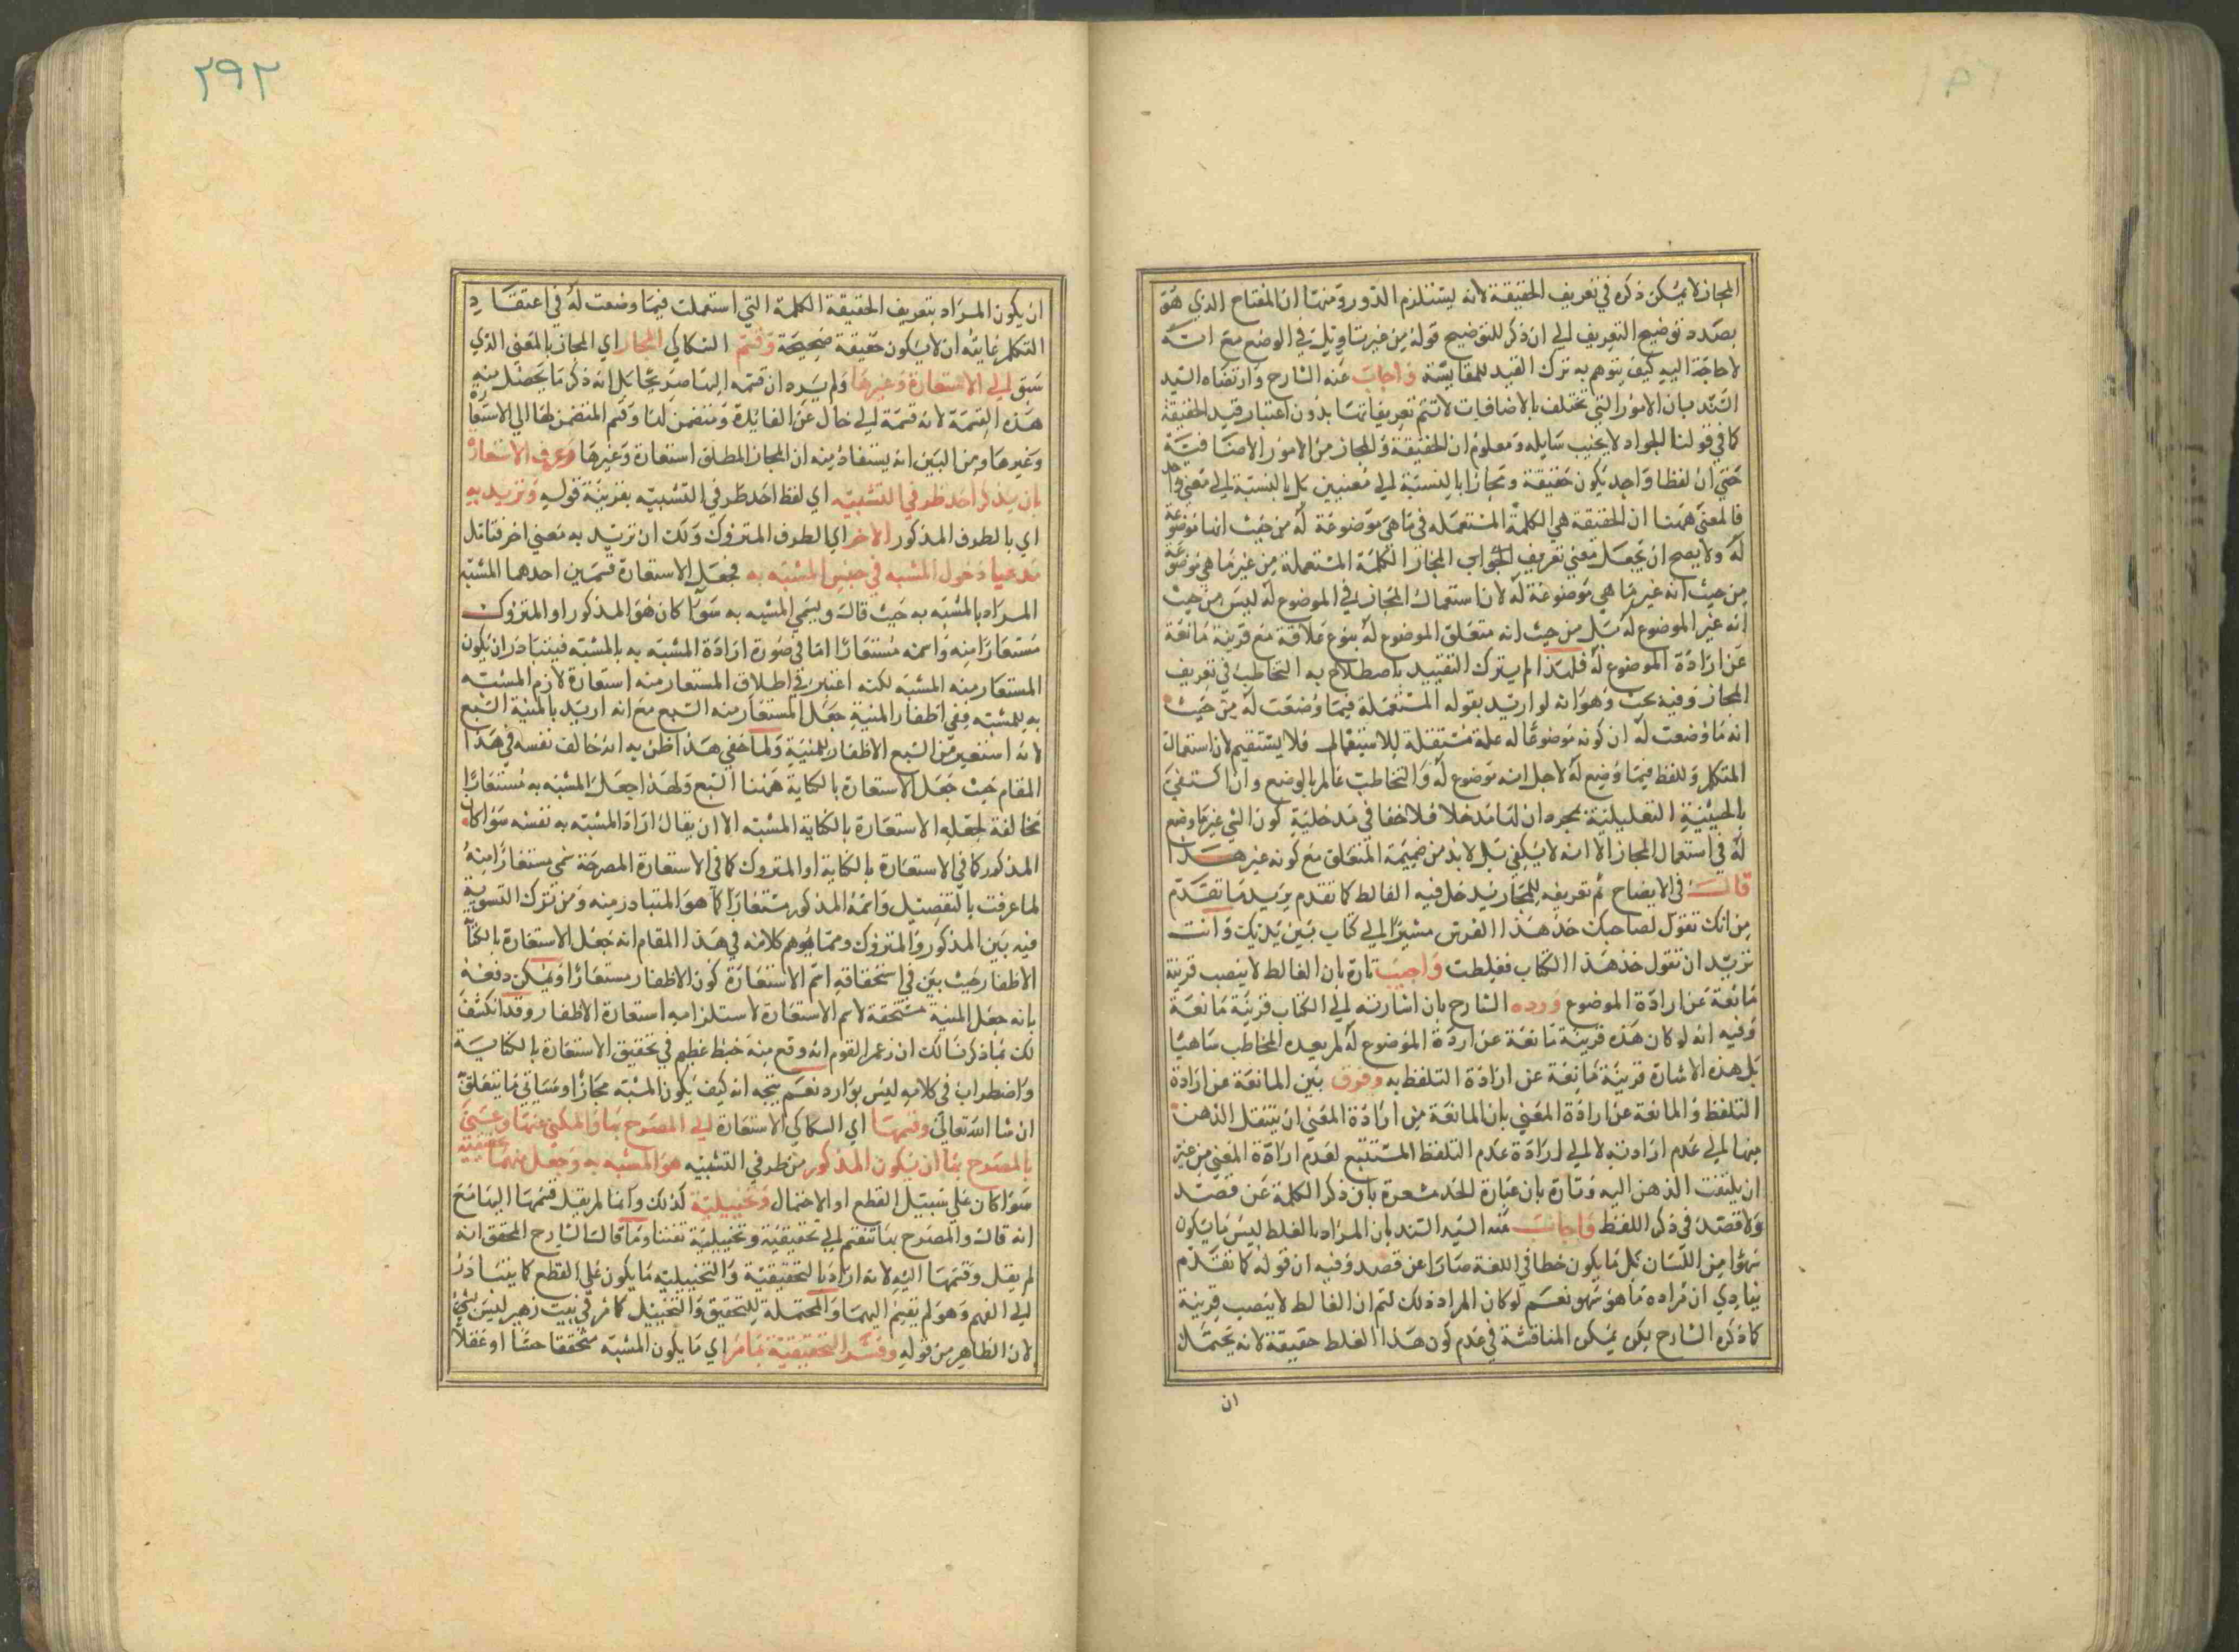 المجاز لا يمكن ذكره في تعريف الحقيقة لانه يستلزم الدور ومنها ان المفتاح الذي هو
بصدد توضيح التعريف الي ان ذكر للتوضيح قوله من غير تاويل في الوضع مع انه
لا حاجة اليه كيف يتوهم به ترك القيد للمقايسة واجاب عنه الشارح وارتضاه السيد
السند بان الامور التي تختلف بالاضافات لا تتم تعريفاتها بدون اعتبار قيد الحقيقة
كما في قولنا الجواد لا يخيب سايله ومعلوم ان الحقيقة والمجاز من الامور الاضافية
حتي ان لفظا واحد يكون حقيقة ومجازا بالنسبة الي معنيين بل بالنسبة الي معني واحد
فالمعني ههنا ان الحقيقة هي الكلمة المستعملة في ما هي موضوعة له من حيث انها موضوعة
له ولا يصح ان يجعل معني تعريف المجاز الكلمة المستعملة من غير ما هي موضوعة
من حيث انه غير ما هي موضوعة له لان استعمال المجاز في الموضوع له ليس من حيث
انه غير الموضوع له بل من حيث انه متعلق الموضوع له بنوع علاقة مع قرينة مانعة
عن ارادة الموضوع له فلهذا لم يترك التقييد باصطلاح به التخاطب في تعريف
المجاز وفيه بحث وهو انه لو اريد بقوله المستعملة فيما وضعت له من حيث
انه ما وضعت له ان كونه موضوعا له علة مستقلة للاستعمال فلا يستقيم لان استعمال
المتكلم وللفظ فيما وضع له لاجل انه موضوع له والتخاطب عالم بالوضع وان اكتفي
بالحيثية التعليلية بمجرد ان لها مدخلا فلا خفا في مدخلية كون الشي غير ما وضع
له في استعمال المجاز الا انه لا يكفي بل لا بد من ضميمة المتعلق مع كونه غير هذا
قال في الايضاح ثم تعريفه للمجاز يدخل فيه الغالط كما تقدم يريد ما تقدم
من انك تقول لصاحبك خذ هذا الفرس مشيرا الي كتاب بين يديك وانت
تريد ان تقول خذ هذا الكتاب فغلطت واجيب تارة بان الغالط لا ينصب قرينة
مانعة عن ارادة الموضوع ورده الشارح بان اشارته الي الكتاب قرينة مانعة
وفيه انه لو كان هذه قرينة مانعة عن اردة الموضوع له لم يعده المخاطب ساهيا
بل هذه الاشارة قرينة مانعة عن ارادة التلفظ به وفرق بين المانعة عن ارادة
التلفظ والمانعة عن ارادة المعني بان المانعة من ارادة المعني ان ينتقل الذهن
منها الي عدم ارادته لا الي ارادة عدم التلفظ المستتبع لعدم ارادة المعني من غير
ان يلتفت الذهن اليه وتارة بان عبارة الحد مشعرة بان ذكر الكلمة عن قصد
ولا قصد في ذكر اللفظ واجاب عنه السيد السند بان المراد بالغلط ليس ما يكون
سهوا من اللسان بل ما يكون خطا في اللغة صارا عن قصد وفيه ان قوله كما تقدم
ينادي ان مراده ما هو سهو نعم لو كان المراد ذلك لتم ان الغالط لا ينصب قرينة
كما ذكره الشارح لكن يمكن المناقشة في عدم كون هذا الغلط حقيقة لانه يحتمل
ان
٢٩٢
ان يكون المراد بتعريف الحقيقة الكلمة التي استعملت فيما وضعت له في اعتقاد
التكلم غايته ان لا يكون حقيقة صحيحة وقسم السكاكي المجاز اي المجاز بالمعني الذي
سبق الي الاستعارة وغيرها ولم يرد ان قسمه اليها صريحا بل انه ذكر ما يحصل منه
هذه القسمة لانه قسمة الي خال عن الفائدة ومتضمن لها وقسم المتضمن لها الي الاستعارة
وغيرها ومن البين انه يستفاد منه ان المجاز المطلق استعارة وغيرها وعرف الاستعارة
بان يذكر احد طرفي التشبيه اي لفظ احد طرفي التشبيه بقرينة قوله وتريد به
اي بالطرف المذكور الاخر اي الطرف المتروك ولك ان تريد به معني اخر فتامل
مدعيا دخول المشبه في جنس المشبه به فجعل الاستعارة قسمين احدهما المشبه
المراد بالمشبه به حيث قال ويسمي المشبه به سوا كان هو المذكور او المتروك
مستعارا منه واسمه مستعارا اما في صورة ارادة المشبه به بالمشبه فيتبادر ان يكون
المستعار منه المشبه لكنه اعتبر في اطلاق المستعار منه استعارة لازم المشبه
به للمشبه ففي اظفار المنية جعل المستعار منه السبع مع انه اريد بالمنية السبع
لانه استعير من السبع الاظفار للمنية ولما خفي هذا ظن به انه خالف نفسه في هذا
المقام حيث جعل الاستعارة بالكناية ههنا السبع ولهذا جعل المشبه به مستعارا
مخالفة لجعله الاستعارة بالكناية المشبه الا ان يقال اراد المشبه به نفسه سوا كان
المذكور كما في الاستعارة بالكناية او المتروك كما في الاستعارة المصرحة سمي مستعارا منه
لما عرفت بالتفصيل واسمه المذكور مستعارا كما هو المتبادر منه ومن ترك التسوية
فيه بين المذكور والمتروك ومما يوهم كلامه في هذا المقام انه جعل الاستعارة بالكنا
الاظفار حيث بين في استحقاقه اسم الاستعارة كون الاظفار مستعارا ويمكن دفعه
بانه جعل المنية مستحقة لاسم الاستعارة لاستلزامه استعارة الاظفار وقد انكشف
لك بما ذكرنا لك ان زعم القوم انه وقع منه خبط عظيم في تحقيق الاستعارة بالكناية
واضطراب في كلامه ليس بوارد نعم يتجه انه كيف يكون المشبه مجازا وسياتي ما يتعلق
ان شا الله تعالي وقسمها اي السكاكي الاستعارة الي المصرح بها والمكني عنها وعني
بالمصرح بها ان يكون المذكور من طرفي التشبيه هو المشبه به وجعل منها تحقيقية
سوا كان علي سبيل القطع او الاحتمال وتخييلية كذلك وانما لم يقل قسمها اليها مع
انه قال والمصرح بها تنقسم الي تحقيقية وتخييلية تفننا وما قال الشارح المحقق انه
لم يقل وقسمها اليه لانه اراد بالتحقيقية والتخييلية ما يكون علي القطع كما يتبادر
الي الفهم وهو لم يقسم اليهما والمحتملة للتحقيق والتخييل كما مر في بيت زهير ليس بشي
لان الظاهر من قوله وفسر التحقيقية بما مر اي ما يكون المشبه متحققا حسا او عقلا